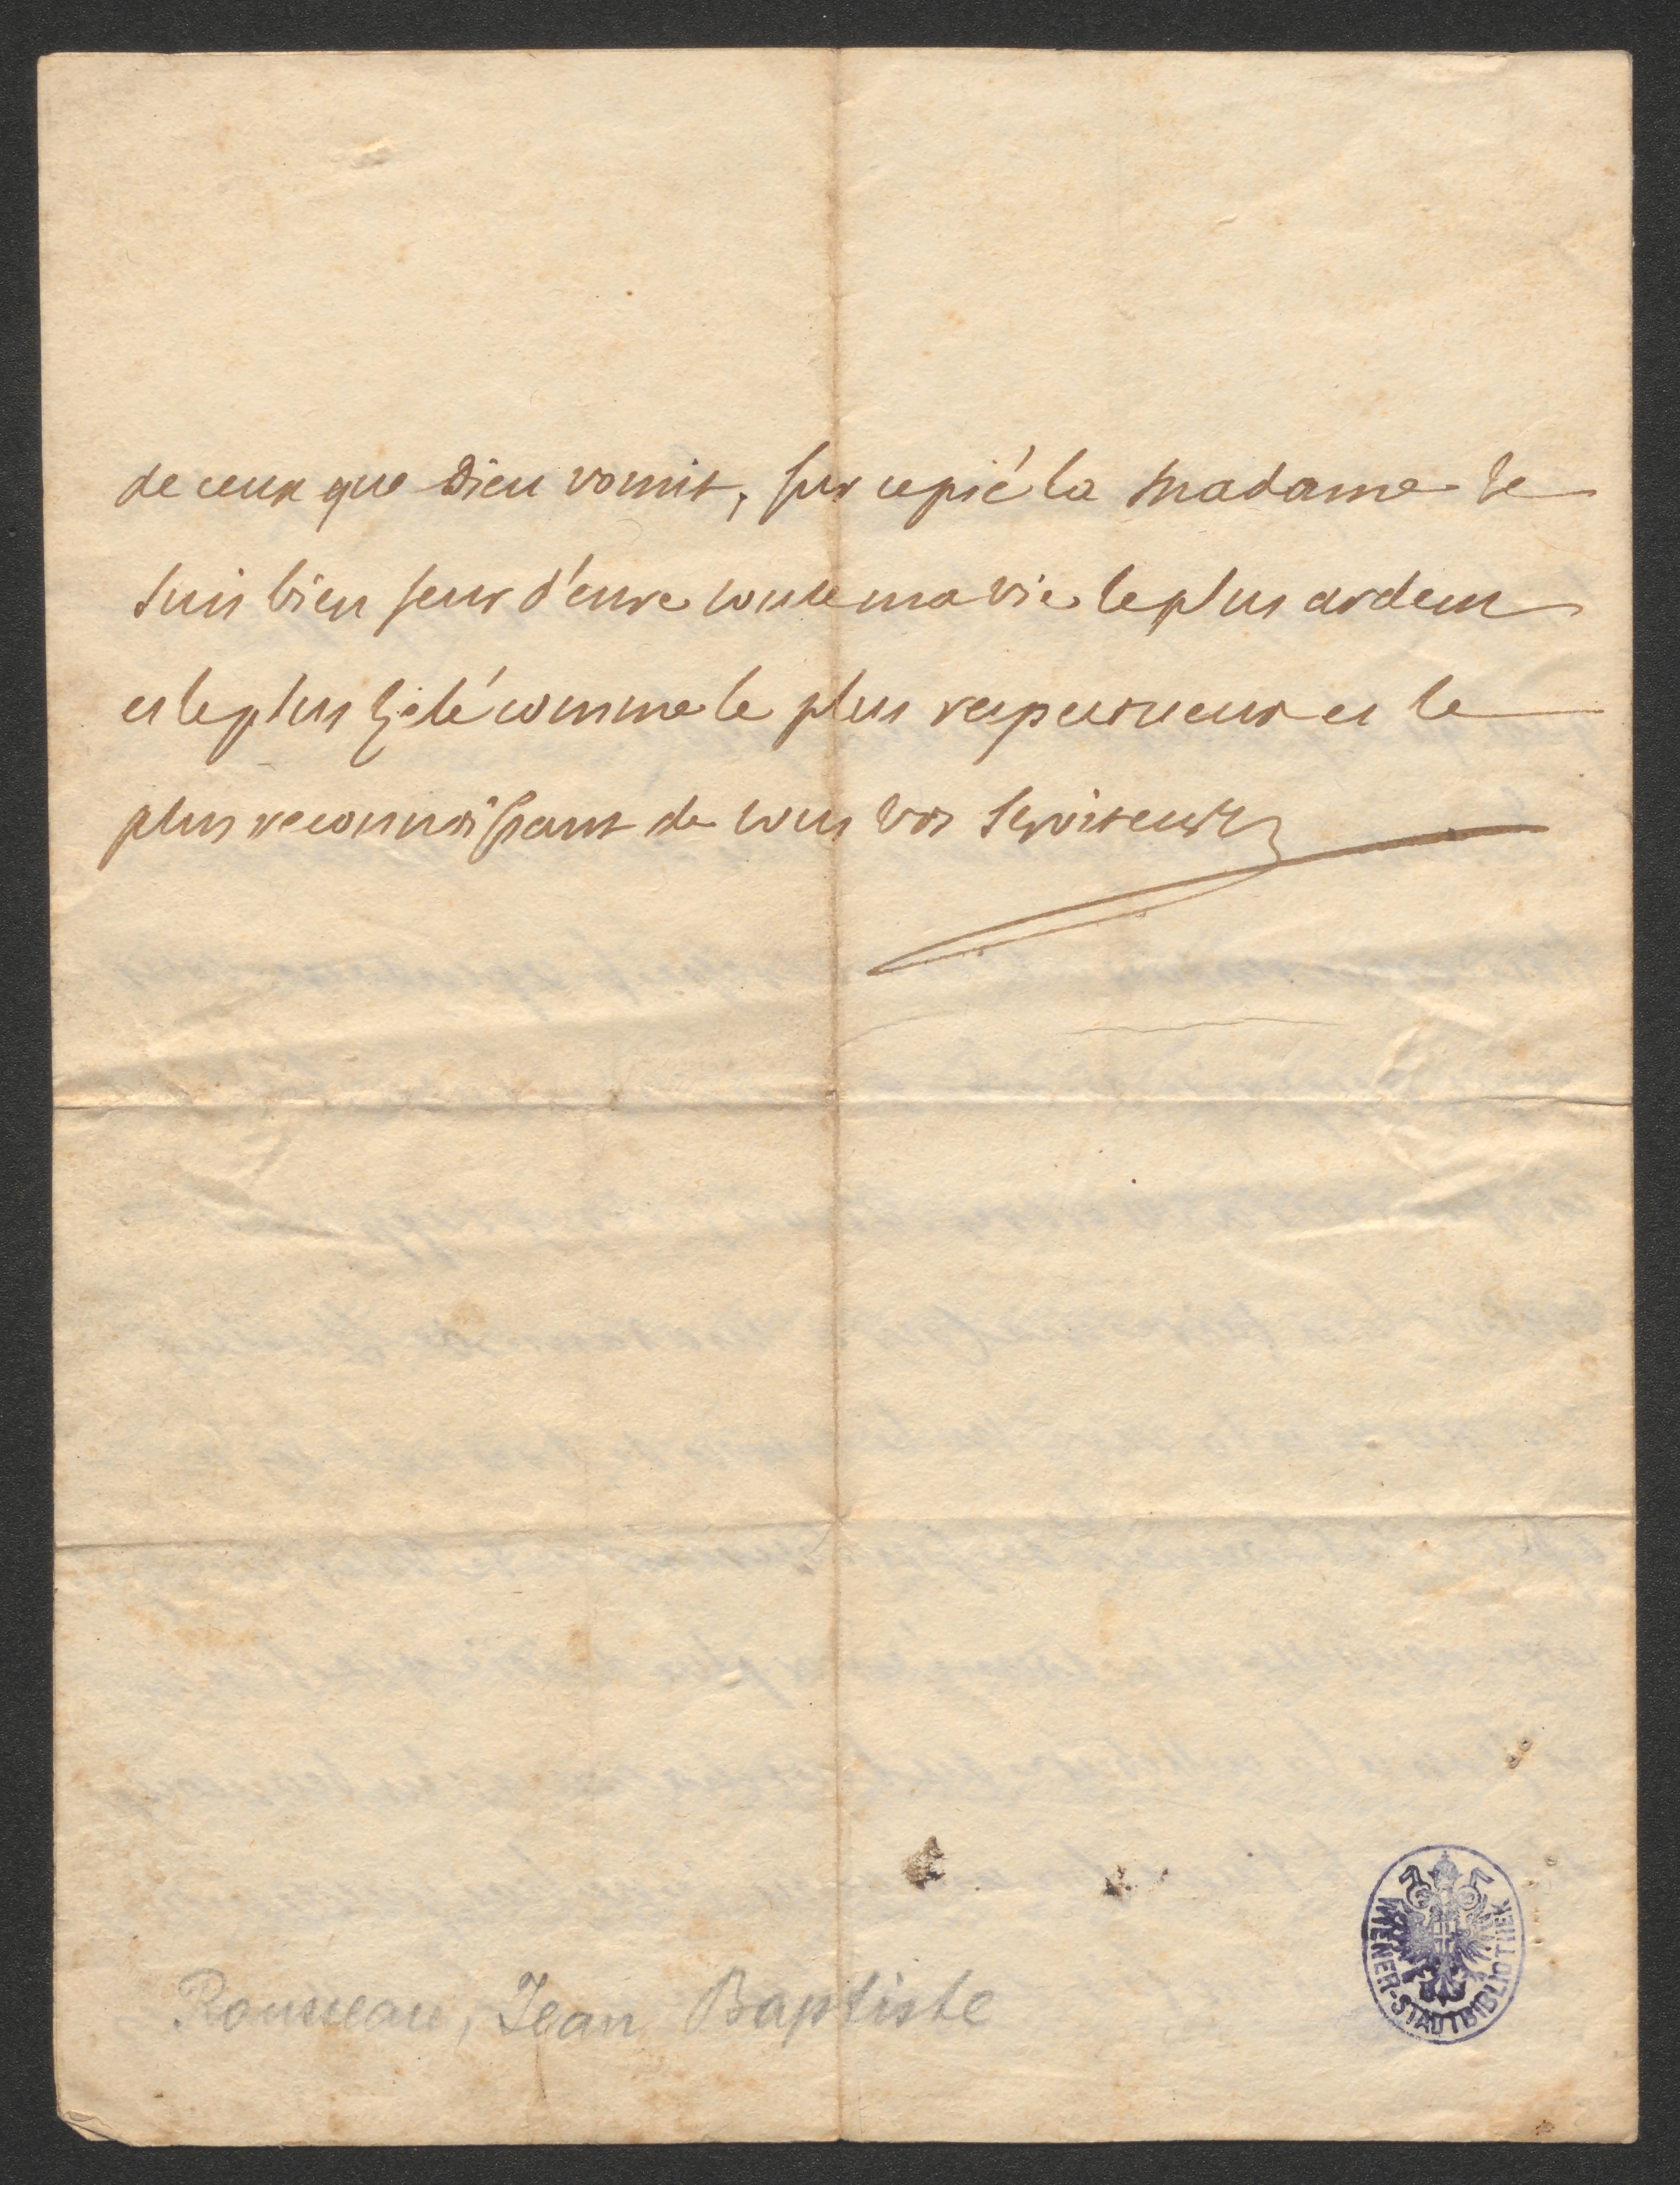 de ceux que Dieu vomit, sur ce pié la Madame Je
suis bien seur d'etre toute ma vie le plus ardent
et le plus zelé comme le plus respectueux et le
plus reconnoissant de tous vos serviteurs
Rousseau, Jean Baptiste
WIENER-STADTBIBLIOTHEK